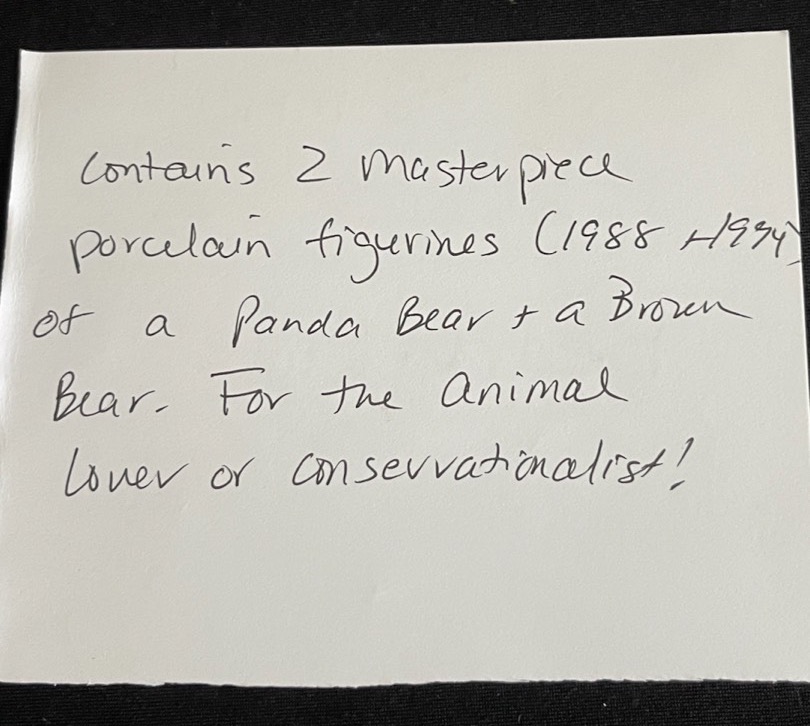 Contains 2 Masterpiece
porcelain figurines (1988 + 1994)
of a Panda Bear + a Brown
Bear. For the animal
lover or conservationalist!